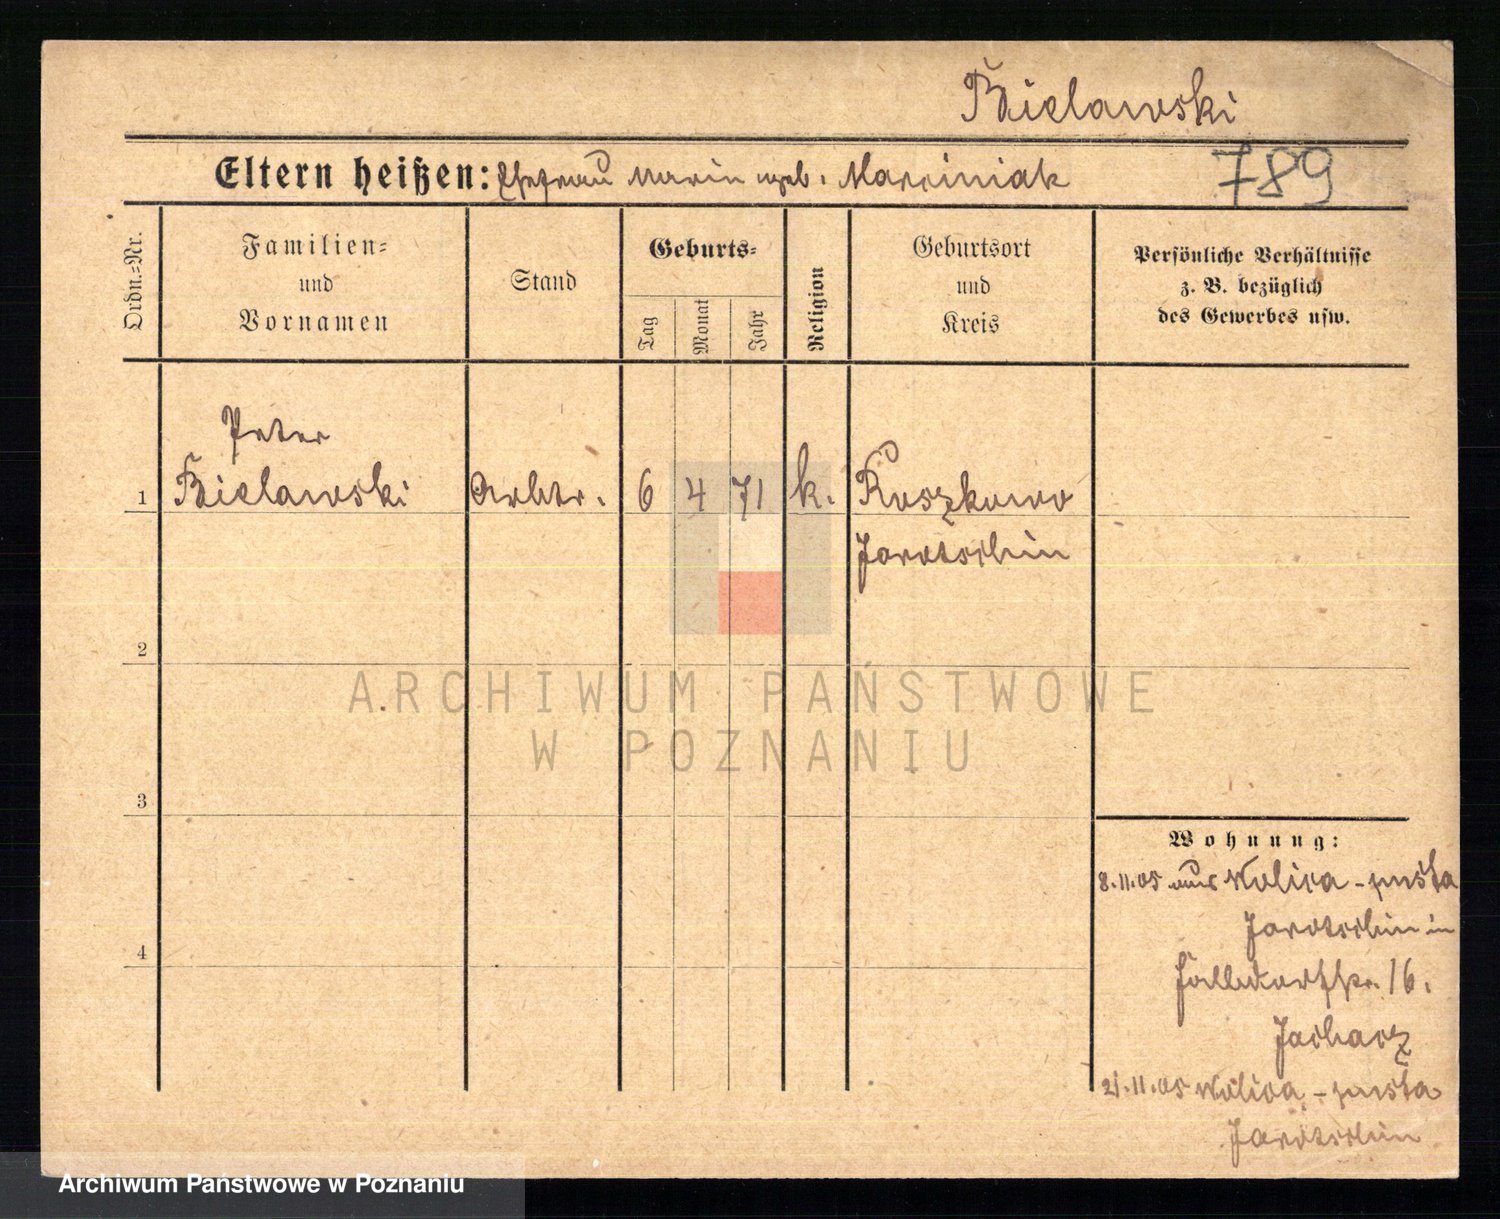 Bielawski
Eltern heißen: Ehefrau Maria geb. Marciniak
789
Ordn.=Nr.
Familien=
und
Vornamen
Stand
Geburts=
Tag
Monat
Jahr
Religion
Geburtsort
und
Kreis
Persönliche Verhältnisse
z. B. bezüglich
des Gewerbes usw.
Peter
1 Bielawski Arbtr. 6 4 71 k. Roszkowo
Jarotschin
2
ARCHIWUM PAŃSTWOWE
W POZNANIU
3
Wohnung:
8.11.05 aus Wolica-pusta
Jarotschin in
16.
4
21.11.05 Wolica-pusta
Jarotschin
Archiwum Państwowe w Poznaniu